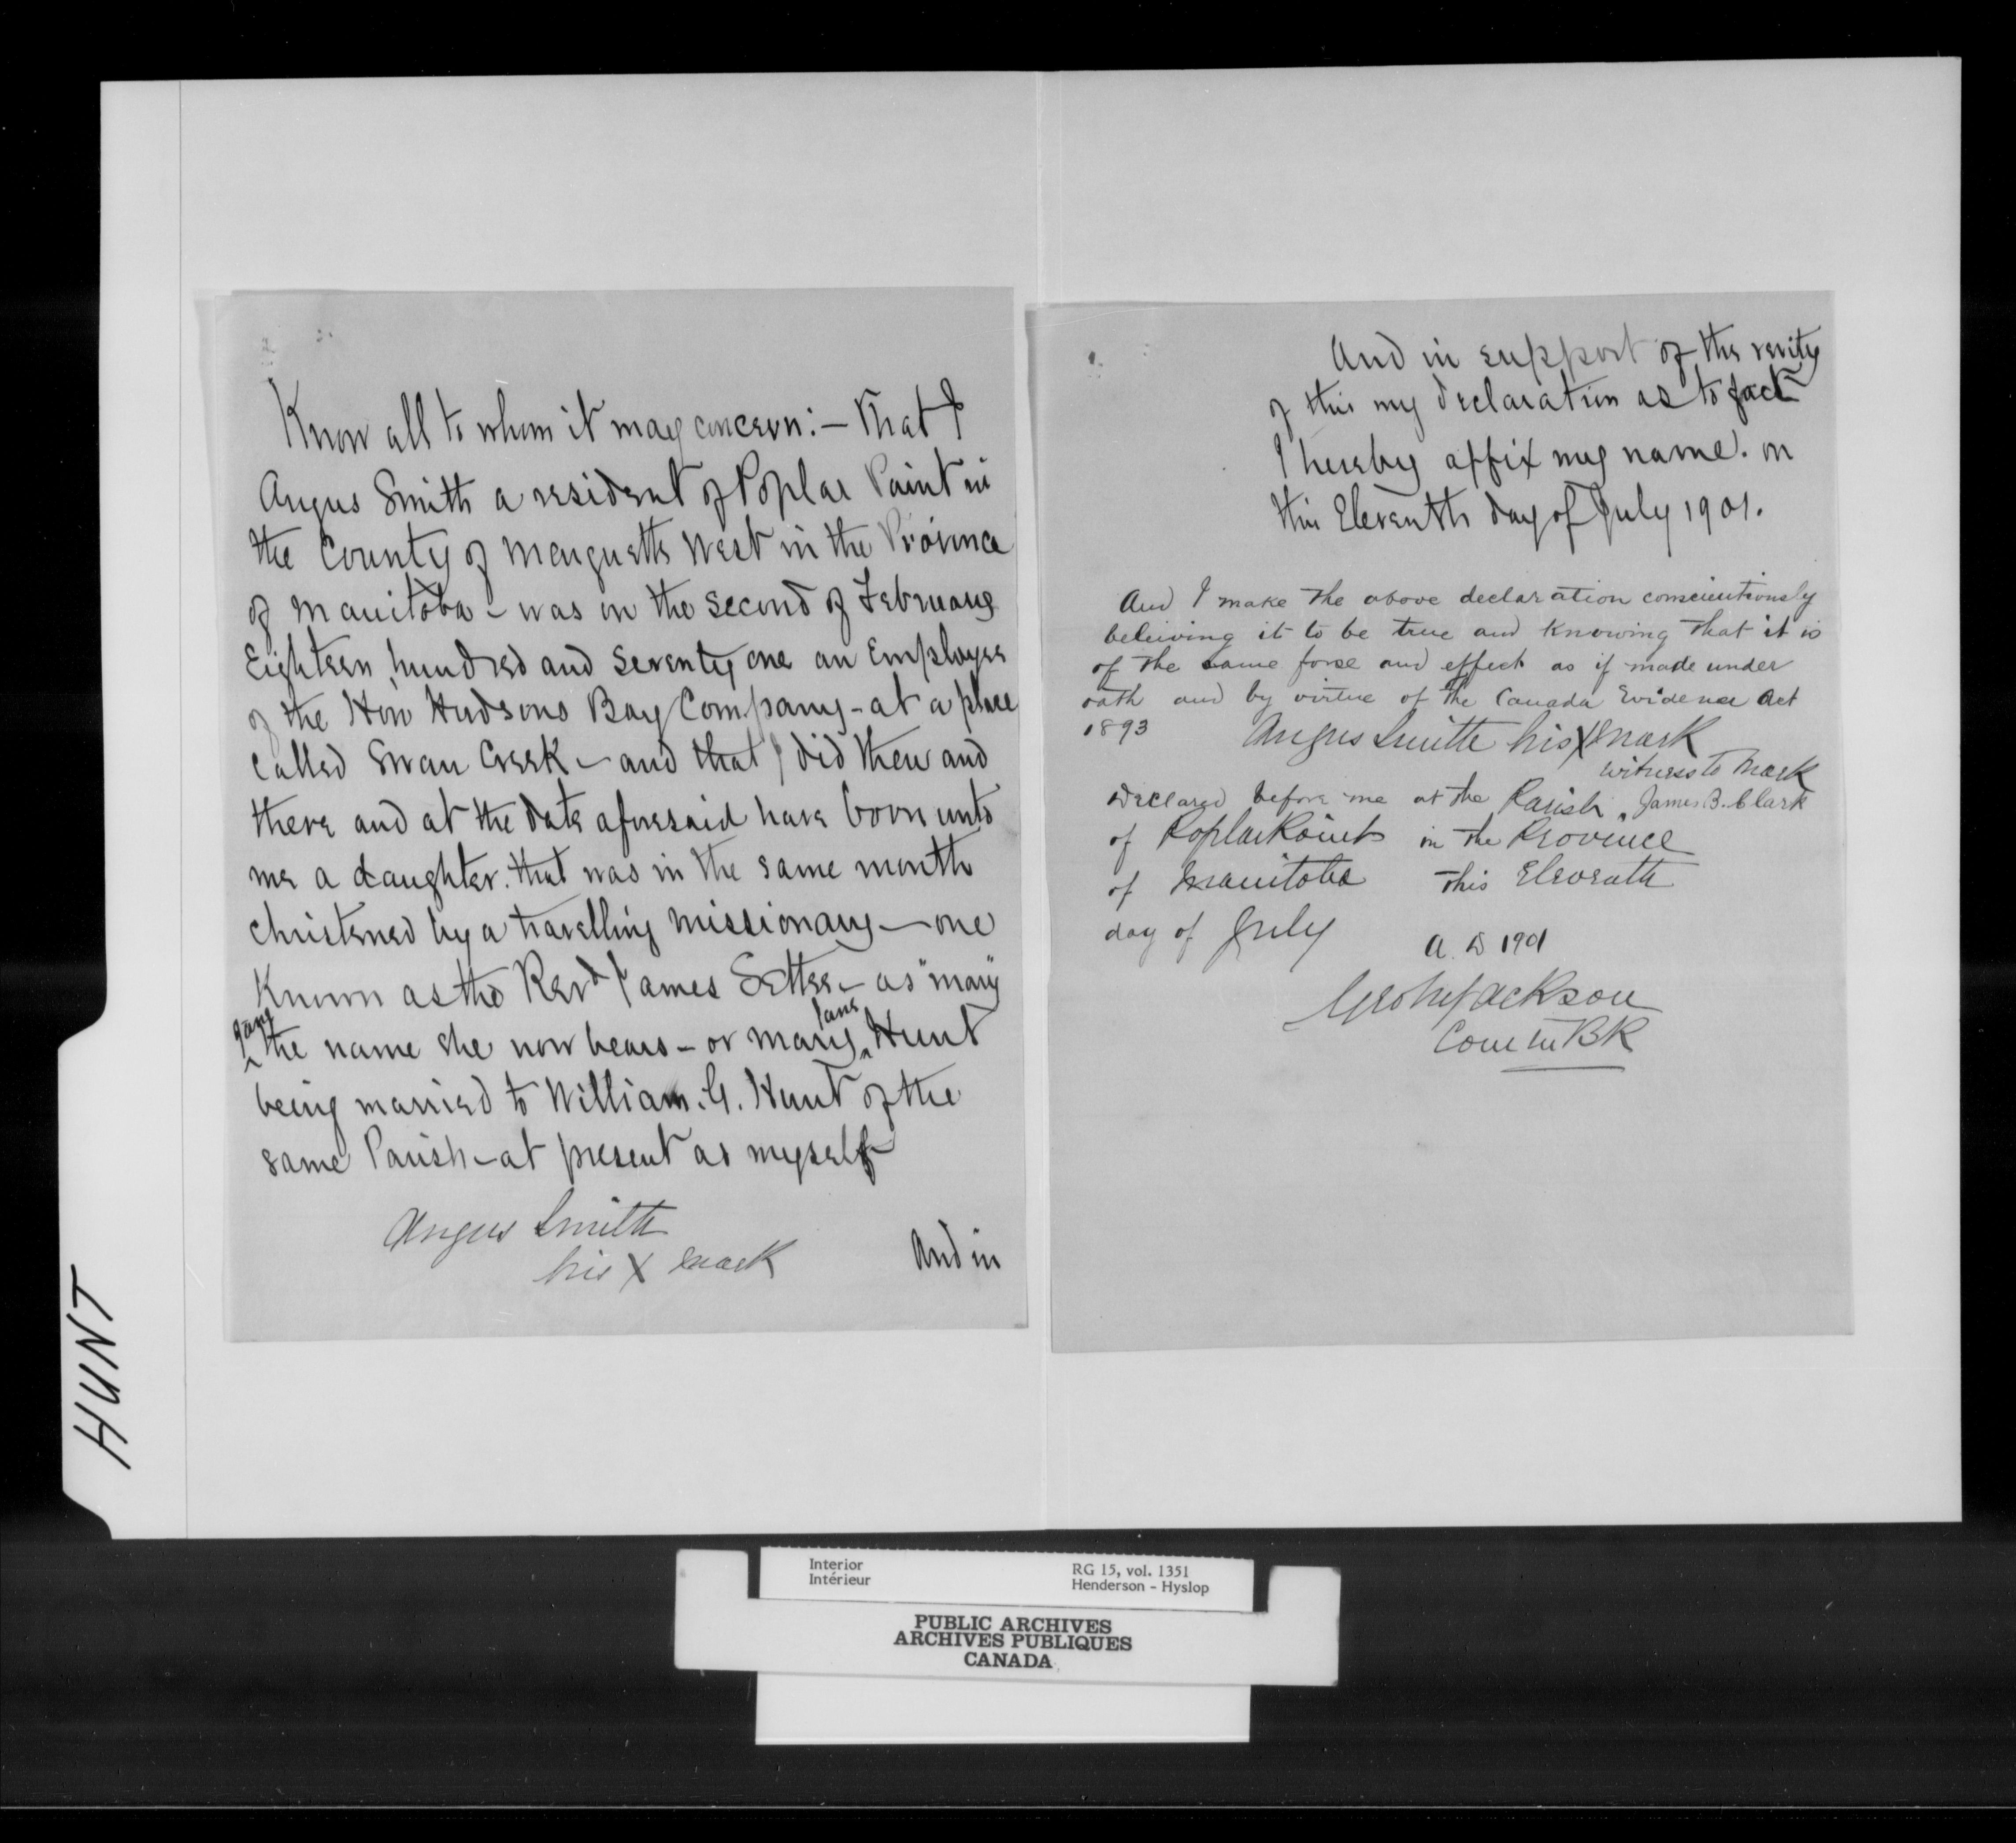 Know all to whom it may concern:— That I
Angus Smith a resident of Poplar Point in
the County of Marquette West in the Province
of Manitoba – was on the second of February
Eighteen hundred and seventy one an Employee
of the Hon Hudsons Bay Company – at a place
called Swan Creek – and that I did then and
there and at the date aforesaid have born unto
me a daughter. that was in the same month
christened by a travelling missionary – one
Known as the Revd James Settee – as "mary"
Jane
^ the name she now bears – or mary ^ Jane Hunt
being married to William. G. Hunt of the
same Parish – at present as myself
Angus Smith
his X mark
And in
And in support of the verity
of this my declaration as to fact
I hereby affix my name. on
this Eleventh day of July 1901.
And I make the above declaration conscientiously
beleiving it to be true and Knowing that it is
of the same force and effect as if made under
oath and by virtue of the Canada Evidence Act
1893 Angus Smith his X mark
witness to mark
Declared before me at the Parish James B. Clark
of Poplar Point in the Province
of Manitoba This Eleventh
day of July A. D 1901
Geo Wm Jackson
Com in BR
HUNT
Interior
Intérieur
RG 15, vol. 1351
Henderson - Hyslop
PUBLIC ARCHIVES
ARCHIVES PUBLIQUES
CANADA